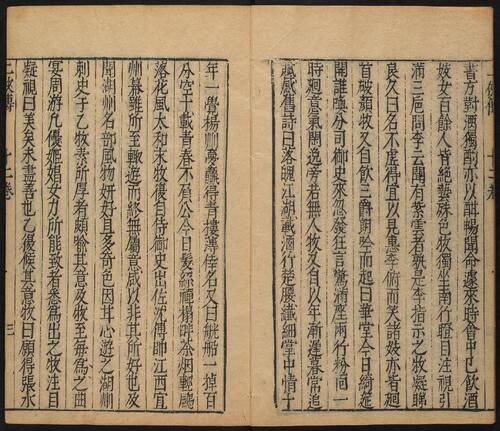 書方對酒獨酌亦以酣暢聞命遽來時會中已飲酒
妓女百餘人皆絕藝殊色牧獨坐南行瞪目注視引
滿三巵問李云聞有紫雲者孰是李指示之牧凝睇
良久曰名不虛得宜以見惠李俯而笑諸妓亦皆廻
首破顏牧又自飲三爵朗吟而起曰華堂今日綺筵
開誰喚分司御史來忽發狂言驚滿座兩行粉面一
時廻意氣閑逸旁若無人牧又自以年漸遲暮常追
賦感舊詩曰落魄江湖載酒行楚腰纖細掌中情十
年一覺楊州夢贏得青樓薄倖名又曰觥船一掉百
分空十載青春不負公今日鬂絲禪榻畔茶烟輕颺
落花風太和末牧復自侍御史出佐沈傳師江西宣
州幕雖所至輒遊而終無屬意咸以非其所好也及
聞湖州名郡風物妍好且多奇色因甘心遊之湖州
刺史于乙牧素所厚者頗喻其意及牧至每爲之曲
宴周游凡優姬娼女力所能致者悉爲出之牧注目
凝視曰美矣未盡善也乙復候其意牧曰願得張水
十二卷
三